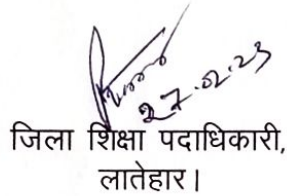 27.02.23
जिला शिक्षा पदाधिकारी,
लातेहार।